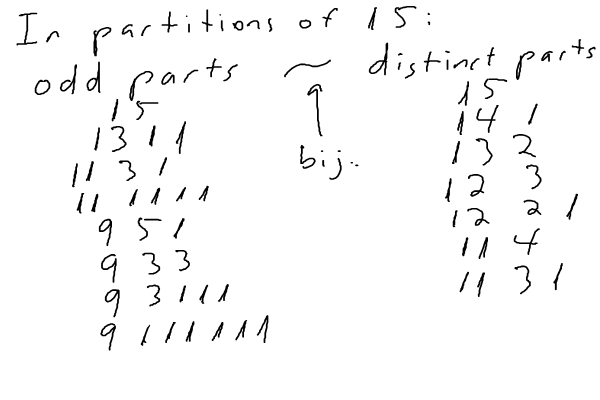 In partitions of 15:
odd parts ~ distinct parts
bij.
15
13 1 1
11 3 1
11 1 1 1 1
9 5 1
9 3 3
9 3 1 1 1
9 1 1 1 1 1 1
15
14 1
13 2
12 3
12 2 1
11 4
11 3 1